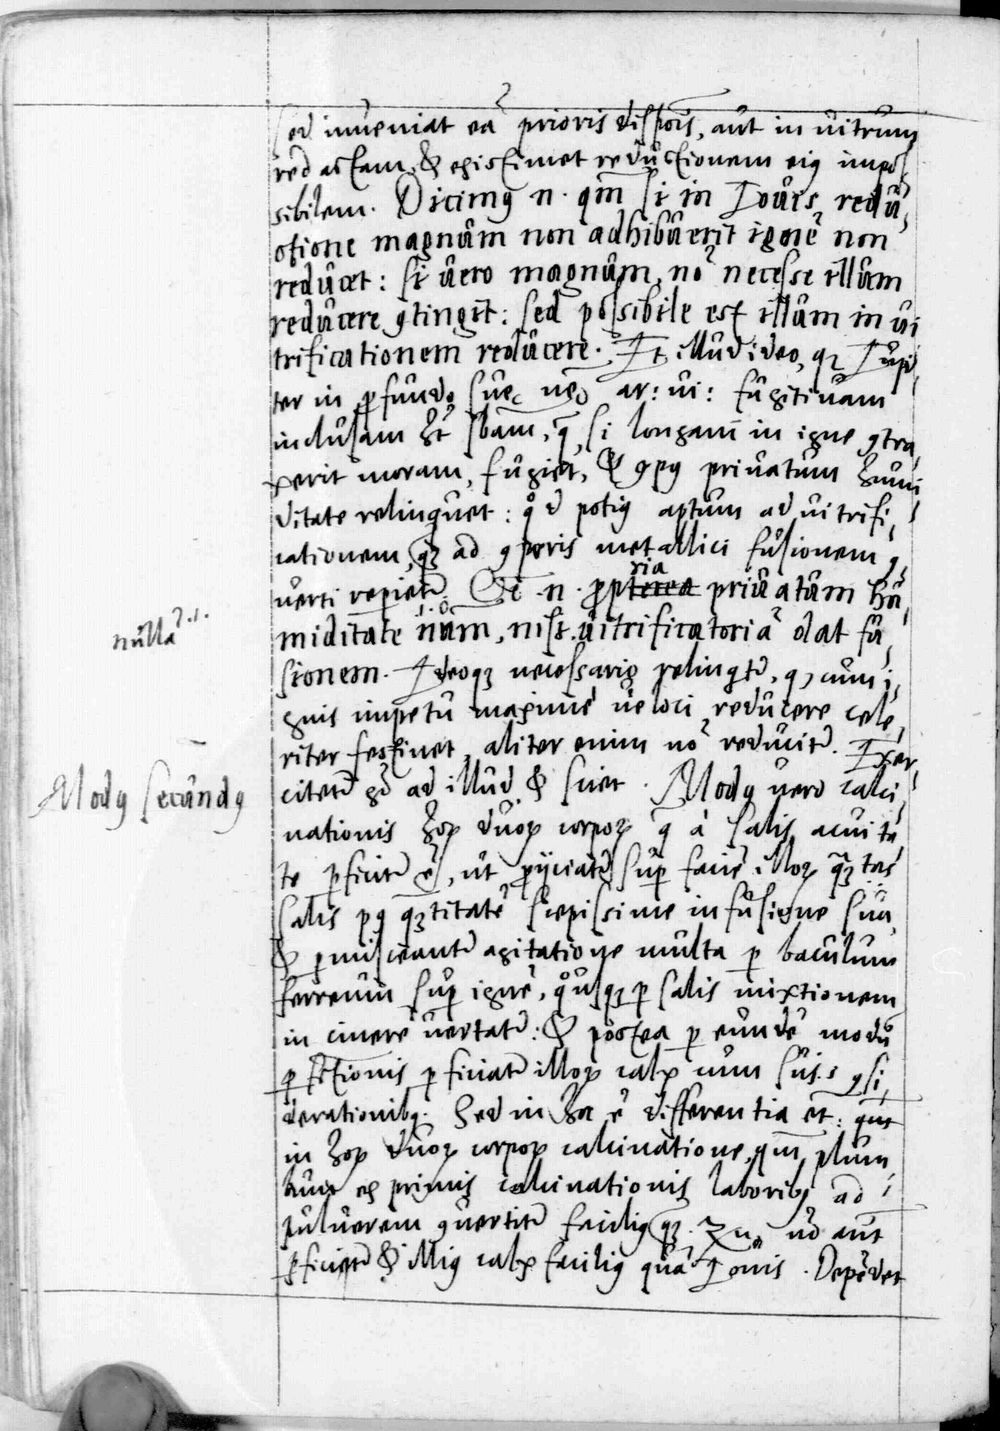 sed inueniat eā prioris dispōis, aut in uitrum
redactam, & existimet reductionem eiꝰ impos
sibilem. Dicimꝰ n. qm̄ si in Iouis redu
ctione magnum non adhibuerit ignē non
reducet: si uero magnum, nō necesse illum
reducere ꝯtingit: sed possibile est illum in ui
trificationem reducere. Et illud ideo, qꝫ Iupi
ter in ꝓfundo sue ar: ui: fugitiuam
inclusam ht̄ sbām, q̄ si longam in igne ꝯtra
xerit moram, fugiet, & ꝯpꝰ priuatum humi
ditate relinquet: potiꝰ aptum ad uitrifi
cationem, qꝫ ad ꝯporis metallici fusionem ꝯ
uerti reperiet̄. Oē n. ꝓpterea ria priuatum hu
miditate num, nisi uitrificatoriā dat fu
sionem. Ideoqꝫ necessariꝰ relinqt̄, qꝫ cum i
gnis impetu maxime ueloci reducere cele
riter festinet, aliter enim nō reducit̄. Exer
citet̄ gͦ ad illud & sciet. Modꝰ uero calci
nationis hoꝝ duoꝝ corpoꝝ q̄ a salis acuita
te ꝑficit̄ ē, ut ꝓijciat̄ suꝑ faciē illoꝝ
salis pꝰ saepissime in fusione sua
& ꝑmisceant̄ agitatione multa ꝑ baculum
ferreum suꝑ ignē, qͦusqꝫ ꝑ salis mixtionem
in cinerē uertat̄: & postea ꝑ eundē modū
ꝑfectionis ꝑficiat̄ illoꝝ calx cum suis ꝯsi
derationibꝰ. Sed in hoc ē differentia et:
in hoꝝ duoꝝ corpoꝝ calcinatione, qm̄ plum
bum ex primis calcinationis laboribꝰ ad
puluerem ꝯuertit̄ faciliꝰ qꝫ aut
ꝑficiet̄ & illiꝰ calx faciliꝰ quā Iouis. Depēdet
nulla
Modꝰ secundꝰ